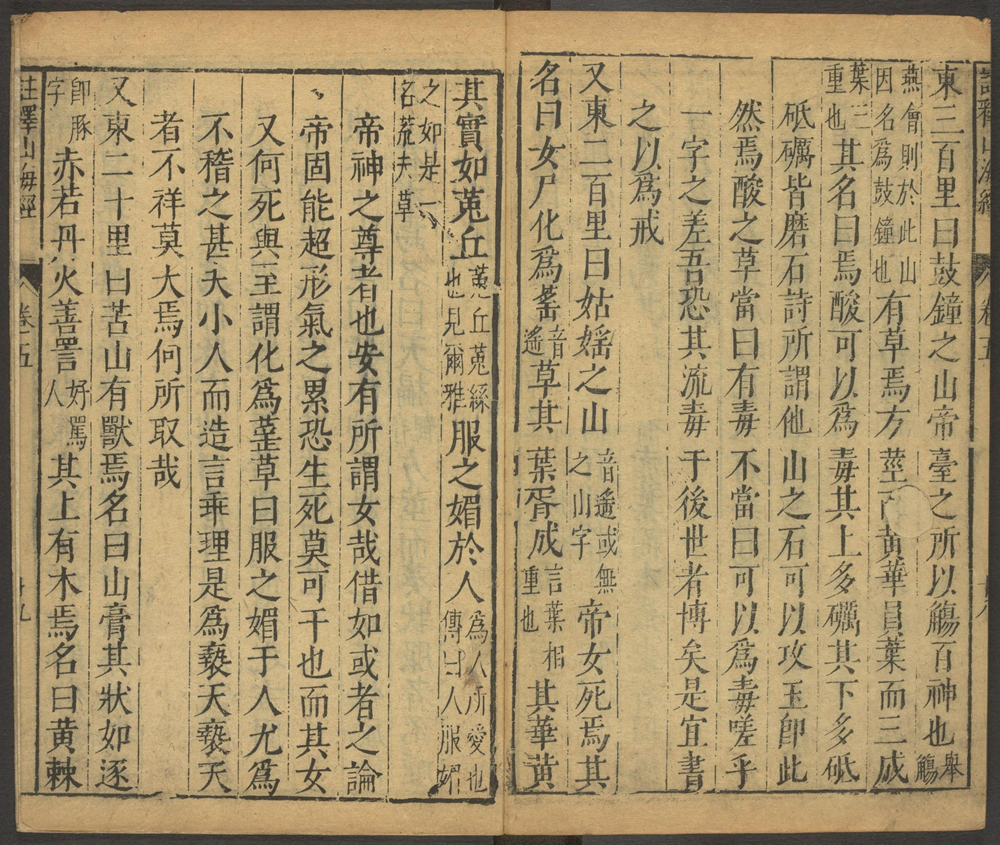 註釋山海經 卷五 十八
東三百里曰鼓鐘之山帝臺之所以觴百神也舉觴
燕會則於此山因名為鼓鐘也有草焉方莖而黃華員葉而三成
葉三重也其名曰焉酸可以為毒其上多礪其下多砥
砥礪皆磨石詩所謂他山之石可以攻玉即此
然焉酸之草當曰有毒不當曰可以為毒嗟乎
一字之差吾恐其流毒于後世者博矣是宜書
之以為戒
又東二百里曰姑媱之山音遙或無之山字帝女死焉其
名曰女尸化為䔄音遙草其葉胥成言葉相重也其華黃
其實如菟丘菟丘菟絲也見爾雅服之媚於人為人所愛也傳曰人服媚
之如是一名荒夫草
帝神之尊者也安有所謂女哉借如或者之論
帝固能超形氣之累恐生死莫可干也而其女
又何死與至謂化為䔄草曰服之媚于人尤為
不稽之甚夫小人而造言乖理是為褻天褻天
者不祥莫大焉何所取哉
又東二十里曰苦山有獸焉名曰山膏其狀如逐
即豚字赤若丹火善詈好罵人其上有木焉名曰黃棘
註釋山海經 卷五 十九